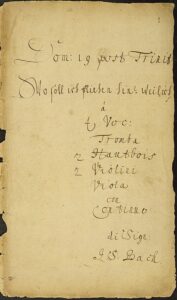 Dom: 19 post Trinit
Wo soll ich fliehen hin: weil ich
â
4 Voc:
Tromba
2 Hautbois
2 Violini
Viola
con
Continuo
di Sigr:
J. S. Bach